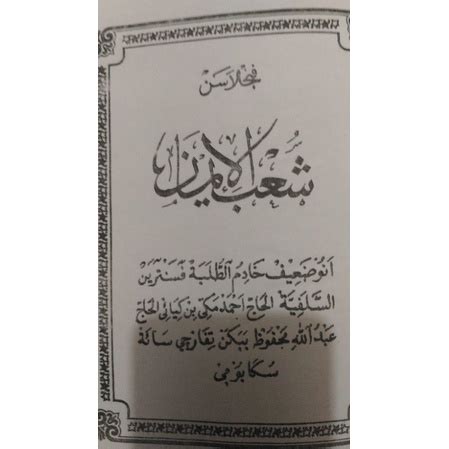 فنجلاسن
شُعَب الإيمان
انو ضَعِيْف خَادِمُ الطَّلَبَةْ فَسَنْتَرَيْن
السَّلَفِيَّة الحَاج اَحْمَدْ مَكِي بن كِيَائي الحَاج
عَبْدُ اللّٰه مَحْفُوظْ بَبَكَنْ تِفَارْ جِي سَاتْ
سُكَابُومِي